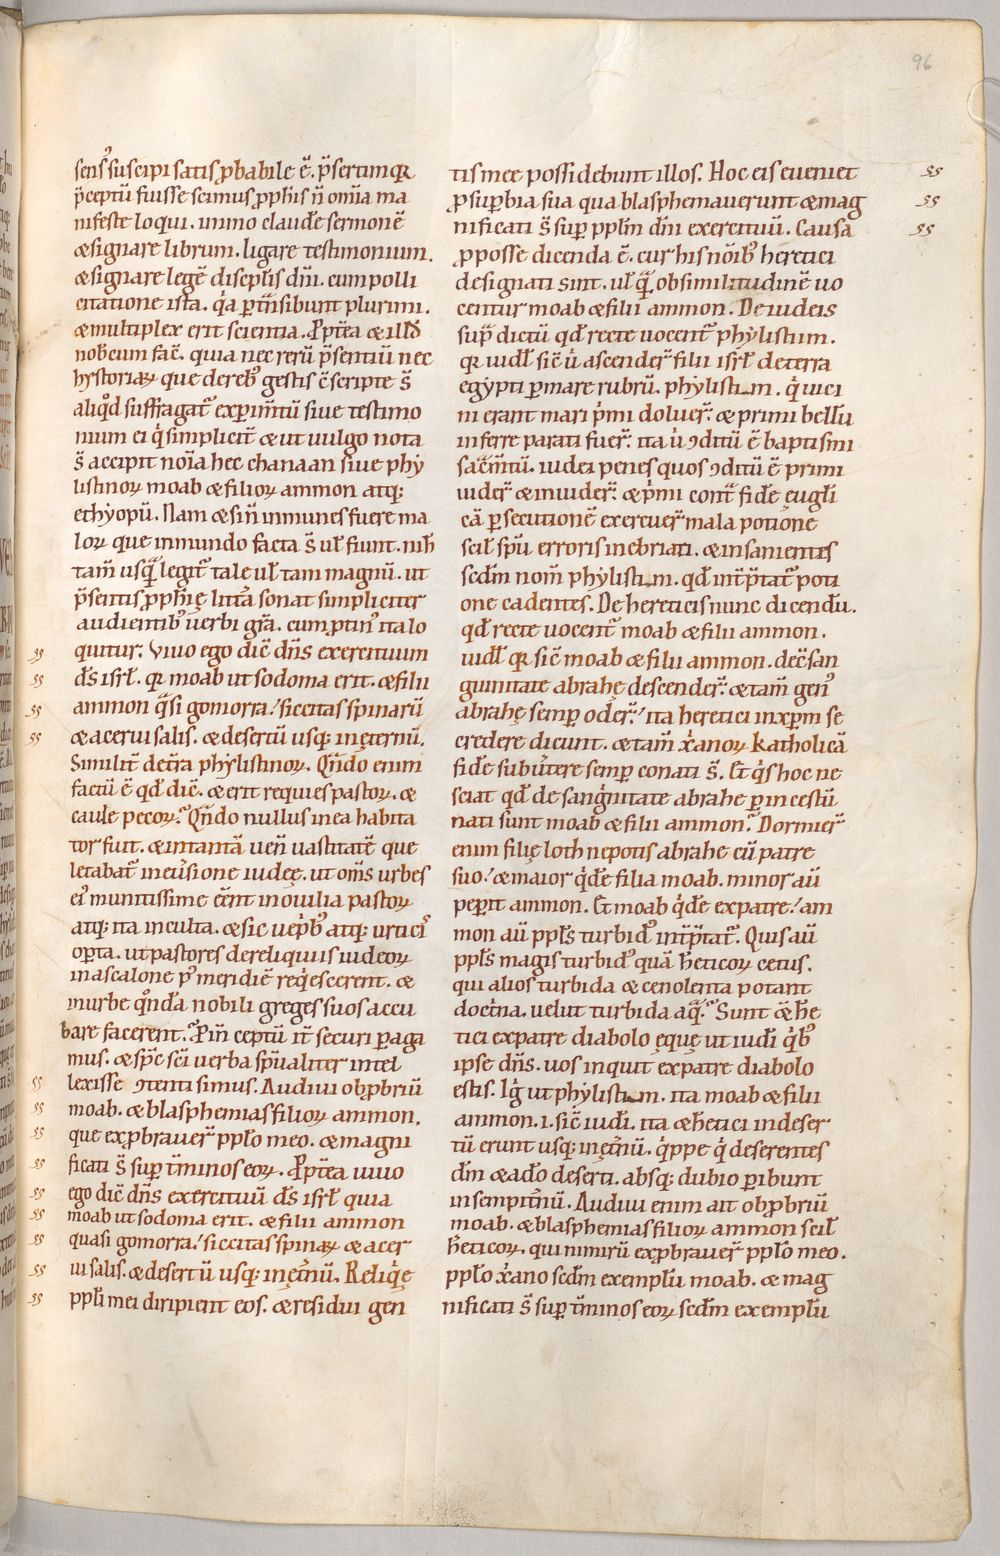 96
sens᾽ suscipi satis ꝓbabile ē. p̄sertim qꝛ
p̄ceptū fuisse scimus ꝓph̄is n̄ om̄ia ma
nifeste loqui. immo claude sermonē
⁊ signare librum. ligare testimonium.
⁊ signare legē discipl̄is dn̄i. cum polli
citatione ista. q̓a ꝑtn̄sibunt plurimi.
⁊ multiplex erit scientia. ꝓpt̄ea ⁊ illd̄
nobcum fac̄. quia nec rerū p̄sentiū nec
hystoriaꝝ que de reb᾽ gestis c̄scripte s̄
aliq̓d suffragat᷑ exꝑim̄tū siue testimo
nium ei q̓ simplicit̄ ⁊ ut uulgo nota
s̄ accipit noīa hec chanaan siue phy
listinoꝝ moab ⁊ filioꝝ ammon atq;
ethyopū. Nam ⁊ si n̄ inmunes fuere ma
loꝝ que inmundo facta s̄ ul̄ fiunt. nih̄
tam̄ usq̄ legit᷑ tale ul̄ tam magnū. ut
p̄sentis ꝓph̄ię litt̄a sonat simpliciter
audientib᾽ uerbi gr̄a. cum ꝓtin᾽ ita lo
quitur. Viuo ego dic̄ dn̄s exercituum
ds̄ isrl̄. qꝛ moab ut sodoma erit. ⁊ filii
ammon q̄si gomorra. siccitas spinarū
⁊ acerui salis. ⁊ desertū usq; in ęternū.
Similit̄ de t̄ra phylistinoꝝ. Qn̄do enim
factū ē qd̄ dic̄. ⁊ erit requies pastoꝝ. ⁊
caule pecoꝝ. Qn̄do nullus in ea habita
tor fuit. ⁊ in tantā uen̄ uastitatē que
letabat᷑ in euersione iudeę. ut om̄s urbes
ei᾽ munitissime cēnt in ouilia pastoꝝ
atq; ita inculta. ⁊ sic uepb᾽ atq; urticis
oꝑta. ut pastores de reliquiis iudeoꝝ
in ascalone p᾽ meridiē req̓escerent. ⁊
in urbe q̄nd̄a nobili greges suos accu
bare facerent. Pin̄ ceptū it̄ securi ꝑaga
mus. ⁊ spc̄ sc̄i uerba sp̄ualiter intel
lexisse ꝯtenti simus. Audiui obꝓbriū
moab. ⁊ blasphemias filioꝝ ammon.
que exꝓbrauer̄ pplo meo. ⁊ magni
ficati s̄ suꝑ t̄minos eoꝝ. ꝓpt̄ea uiuo
ego dic̄ dn̄s exercituū ds̄ isrl̄ quia
moab ut sodoma erit. ⁊ filii ammon
quasi gomorra. siccitas spinaꝝ ⁊ acer
ui salis. ⁊ desertū usq; in ęt̄nū. Reliq̓ę
ppl̄i mei diripient eos. ⁊ residui gen
tis mee possidebunt illos. Hoc eis eueniet
ꝓ suꝑbia sua qua blasphemauerunt ⁊ mag
nificati s̄ suꝑ ppl̄m dn̄i exercituū. Causa
ꝓposse dicenda ē. cur his noīb᾽ heretici
designati sint. ul̄ q̄ obsimilitudinē uo
centur moab ⁊ filii ammon. De iudeis
sup̄ dictū qd̄ recte uocent᷑ phylistiim.
qꝛ uidl̄ sic̄ u̓ ascender̄ filii isrl̄ de terra
egypti ꝑ mare rubrū. phylistiim. q̓ uici
ni erant mari p̓mi doluer̄. ⁊ primi bellū
inferre parati fuer̄. ita u̓ ꝯditū ē baptismi
sac̄m̄tū. iudei penes quos ꝯditū ē primi
uider̄ ⁊ inuider̄. ⁊ p̓mi cont̄ fidē eugl̄i
eā ꝑsecutionē exercuer̄ mala potione
scil̄ sp̄u erroris inebriati. ⁊ insanientes
scdm̄ nom̄ phylistiim. qd̄ int̄ptat᷑ poti
one cadentes. De hereticis nunc dicendū.
qd̄ recte uocent᷑ moab ⁊ filii ammon.
uidl̄ qꝛ sic̄ moab ⁊ filii ammon. de c̄san
guinitate abrahę descender̄. ⁊ tam̄ gen᾽
abrahę semꝑ oder̄. ita heretici in xp̄m se
credere dicunt. ⁊ tam̄ xp̄anoꝝ katholicā
fidē subu̓tere semꝑ conati s̄. Et q̓s hoc ne
sciat qd̄ de sang̓nitate abrahe ꝑ incestū
nati sunt moab ⁊ filii ammon. Dormier̄
enim filię loth nepotis abrahe cū patre
suo. ⁊ maior q̓dē filia moab. minor aū
peꝑit ammon. Et moab q̓dē ex patre. am
mon aū ppl̄s turbid᾽ int̄ptat᷑. Quis aū
ppl̄s magis turbid᾽ quā h̄eticoꝝ cetus.
qui alios turbida ⁊ cenolenta potant
doct̓na. uelut turbida aq̄. Sunt ⁊ he
tici ex patre diabolo ęque ut iudi̓ q̓b᾽
ipse dn̄s. uos inquit ex patre diabolo
estis. Ig̓ ut phylistiim. ita moab ⁊ filii
ammon. i. sic̄ iudi̓. ita ⁊ h̄etici in deser
tū erunt usq; in ęt̄nū. q̓ppe q̓ deserentes
dm̄ ⁊ a do deserti. absq; dubio ꝑibunt
in sempit̄nū. Audiui enim ait obꝓbriū
moab. ⁊ blasphemias filioꝝ ammon scil̄
h̄eticoꝝ. qui nimirū exꝓbrauer̄ pplo meo.
pplo xp̄ano scdm̄ exemplū moab. ⁊ mag
nificati s̄ suꝑ t̄minos eoꝝ scdm̄ exemplū